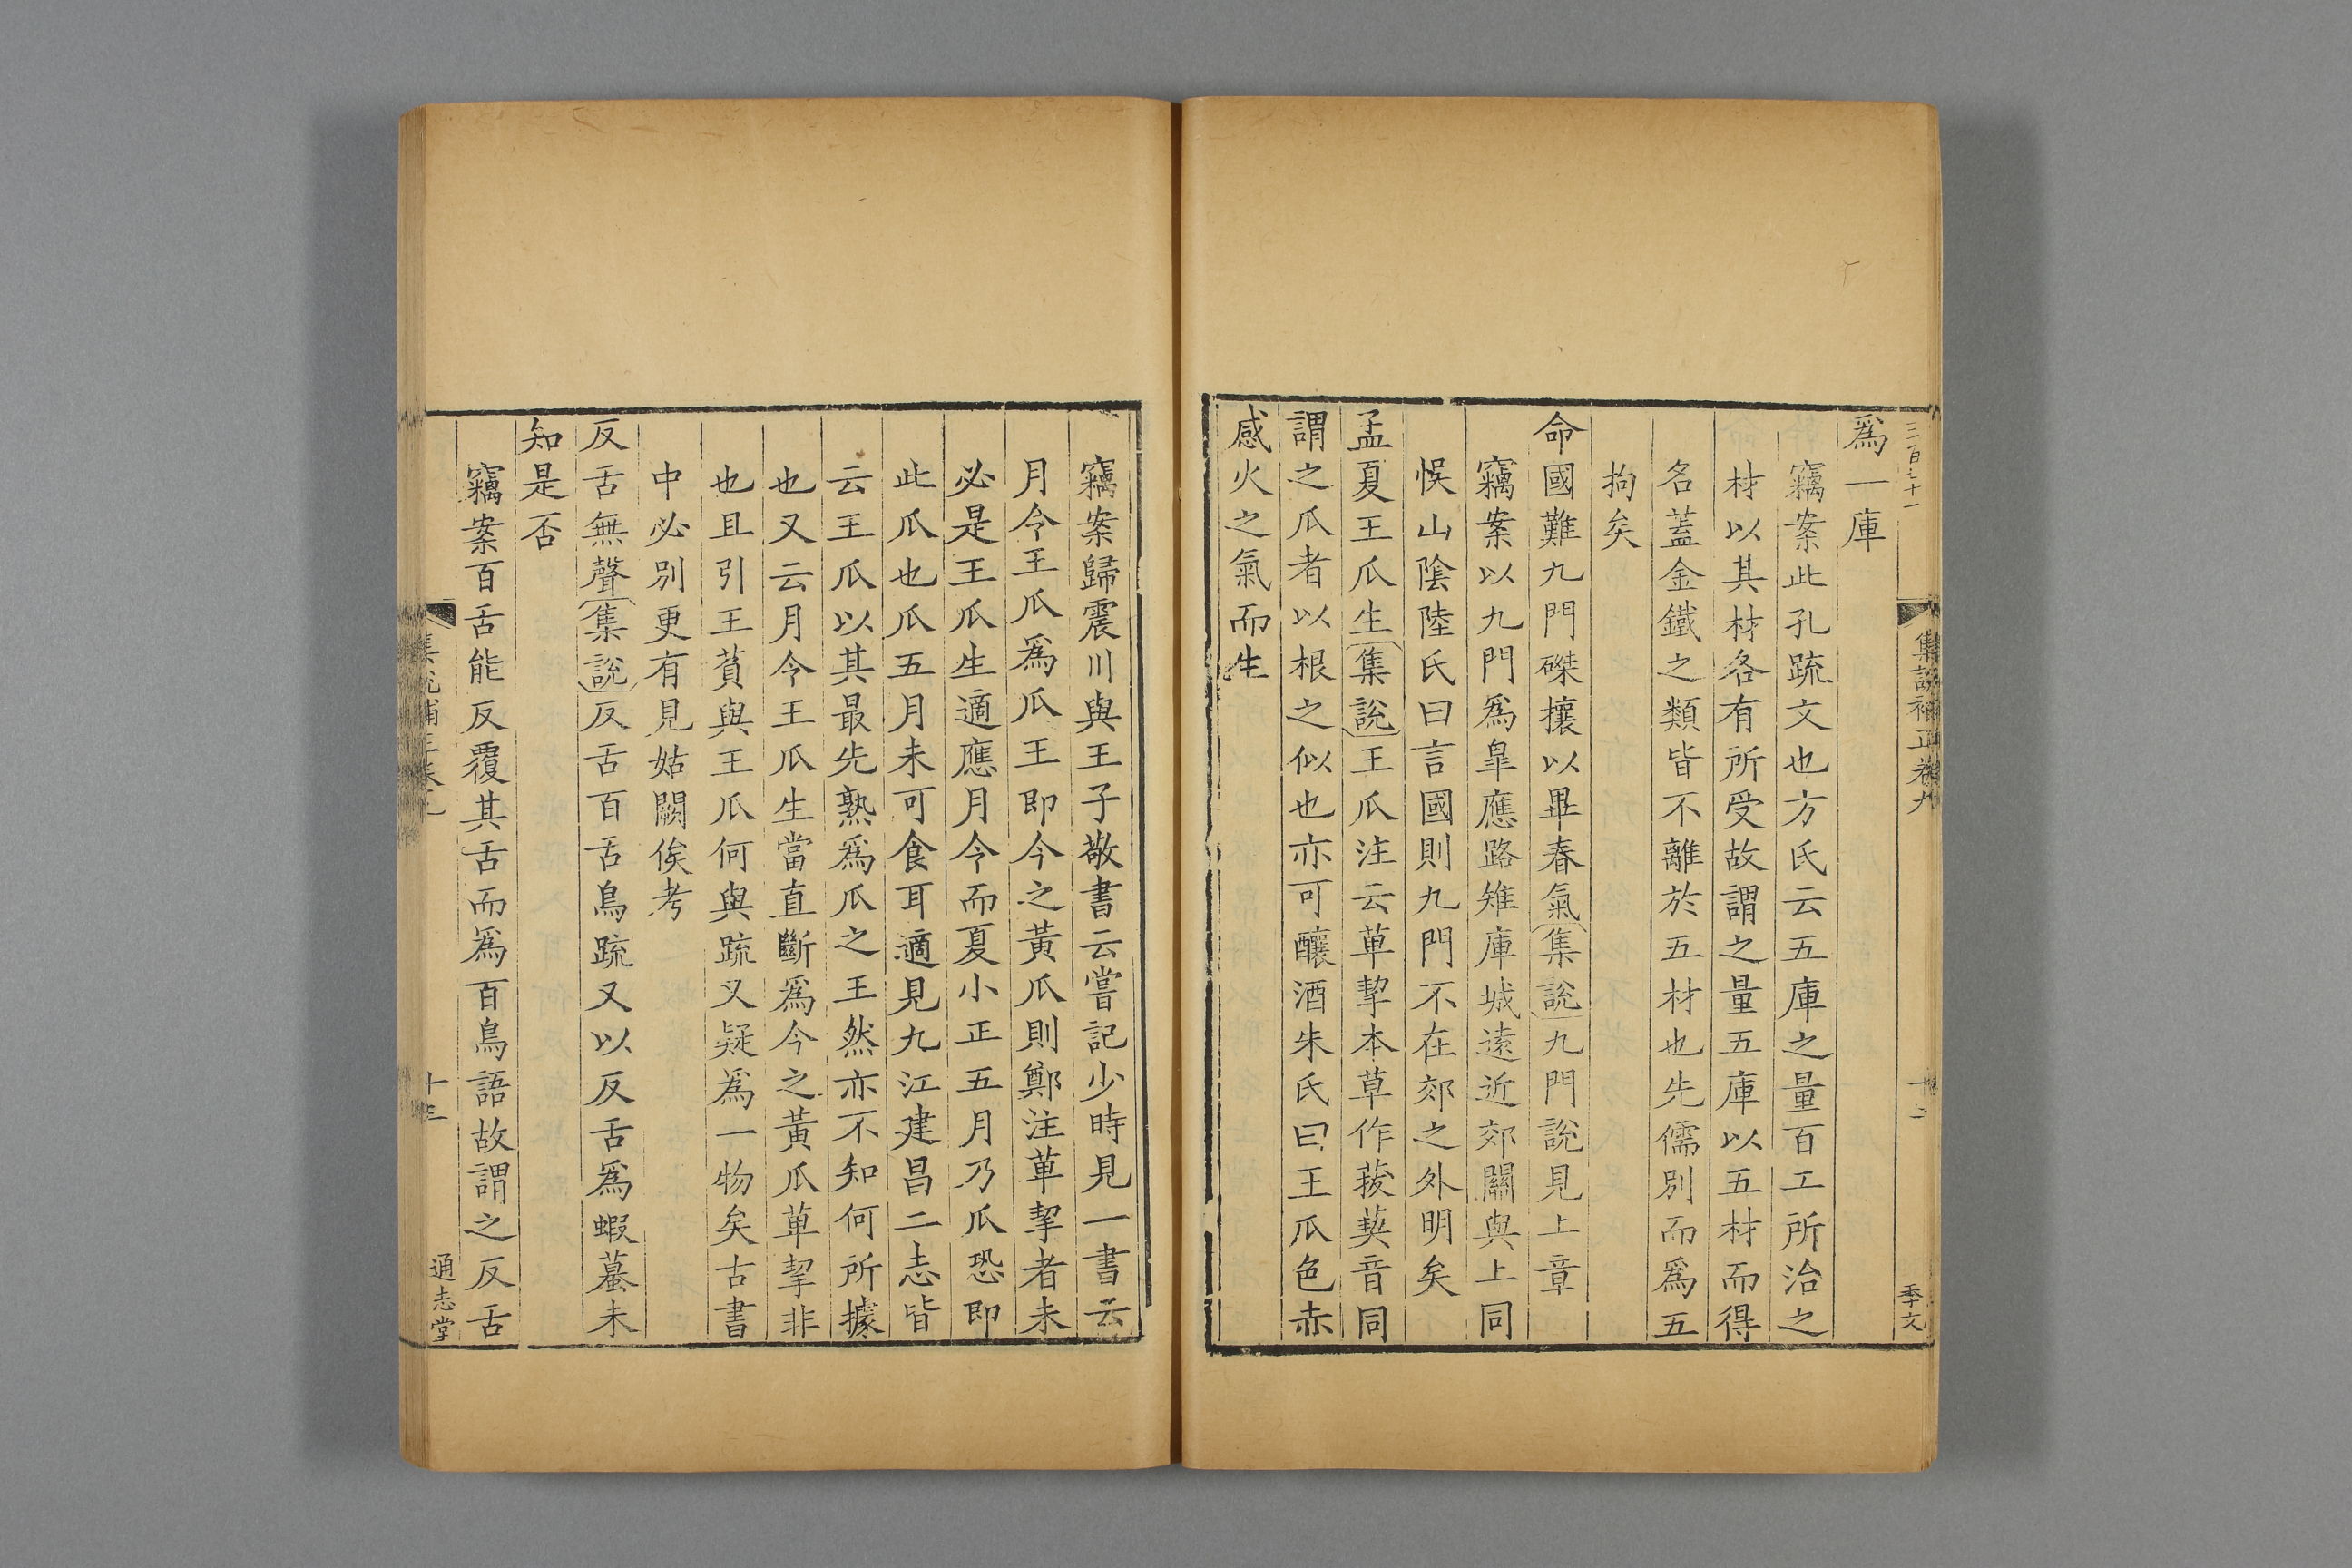 集說補正卷九
季文
爲一庫
竊案此孔疏文也方氏云五庫之量百工所治之
材以其材各有所受故謂之量五庫以五材而得
名蓋金鐵之類皆不離於五材也先儒別而爲五
拘矣
命國難九門磔攘以畢春氣集說九門說見上章
竊案以九門爲臯應路雉庫城遠近郊關與上同
悞山陰陸氏曰言國則九門不在郊之外明矣
孟夏王瓜生集說王瓜注云萆挈本草作菝葜音同
謂之瓜者以根之似也亦可釀酒朱氏曰王瓜色赤
感火之氣而生
竊案歸震川與王子敬書云嘗記少時見一書云
月令王瓜爲瓜王即今之黃瓜則鄭注萆挈者未
必是王瓜生適應月令而夏小正五月乃瓜恐即
此瓜也瓜五月未可食耳適見九江建昌二志皆
云王瓜以其最先熟爲瓜之王然亦不知何所據
也又云月令王瓜生當直斷爲今之黃瓜萆挈非
也且引王萯與王瓜何與疏又疑爲一物矣古書
中必別更有見姑闕俟考
反舌無聲集說反舌百舌鳥疏又以反舌爲蝦蟇未
知是否
竊案百舌能反覆其舌而爲百鳥語故謂之反舌
十三
通志堂